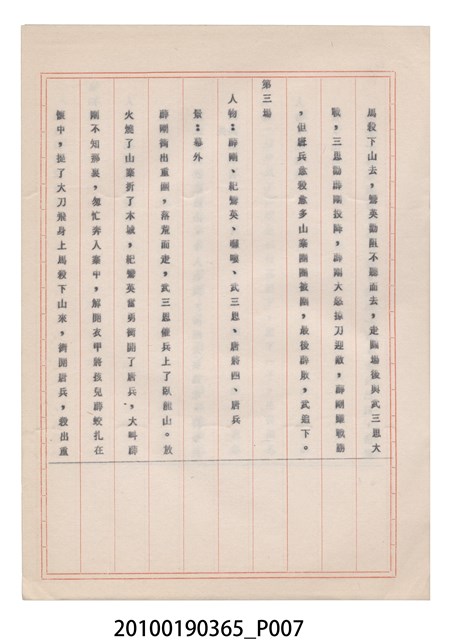 馬殺下山去，鸞英勸阻不聽而去，走圓場後與武三思大
戰，三思勸薛剛投降，薛剛大怒掠刀迎敵，薛剛雖戰勝
，但唐兵愈殺愈多山寨團團被圍，最後薛敗，武追下。
第三場
人物：薛剛、紀鸞英、嘍囉、武三思、唐將四、唐兵
景：幕外
薛剛衝出重圍，落荒而走，武三思催兵上了臥龍山。放
火燒了山寨折了木城，紀鸞英奮勇衝開了唐兵，大叫薛
剛不知那裏，匆忙奔入寨中，解開衣甲將孩兒薛蛟扎在
懷中，提了大刀飛身上馬殺下山來，衝開唐兵，殺出重
20100190365_P007